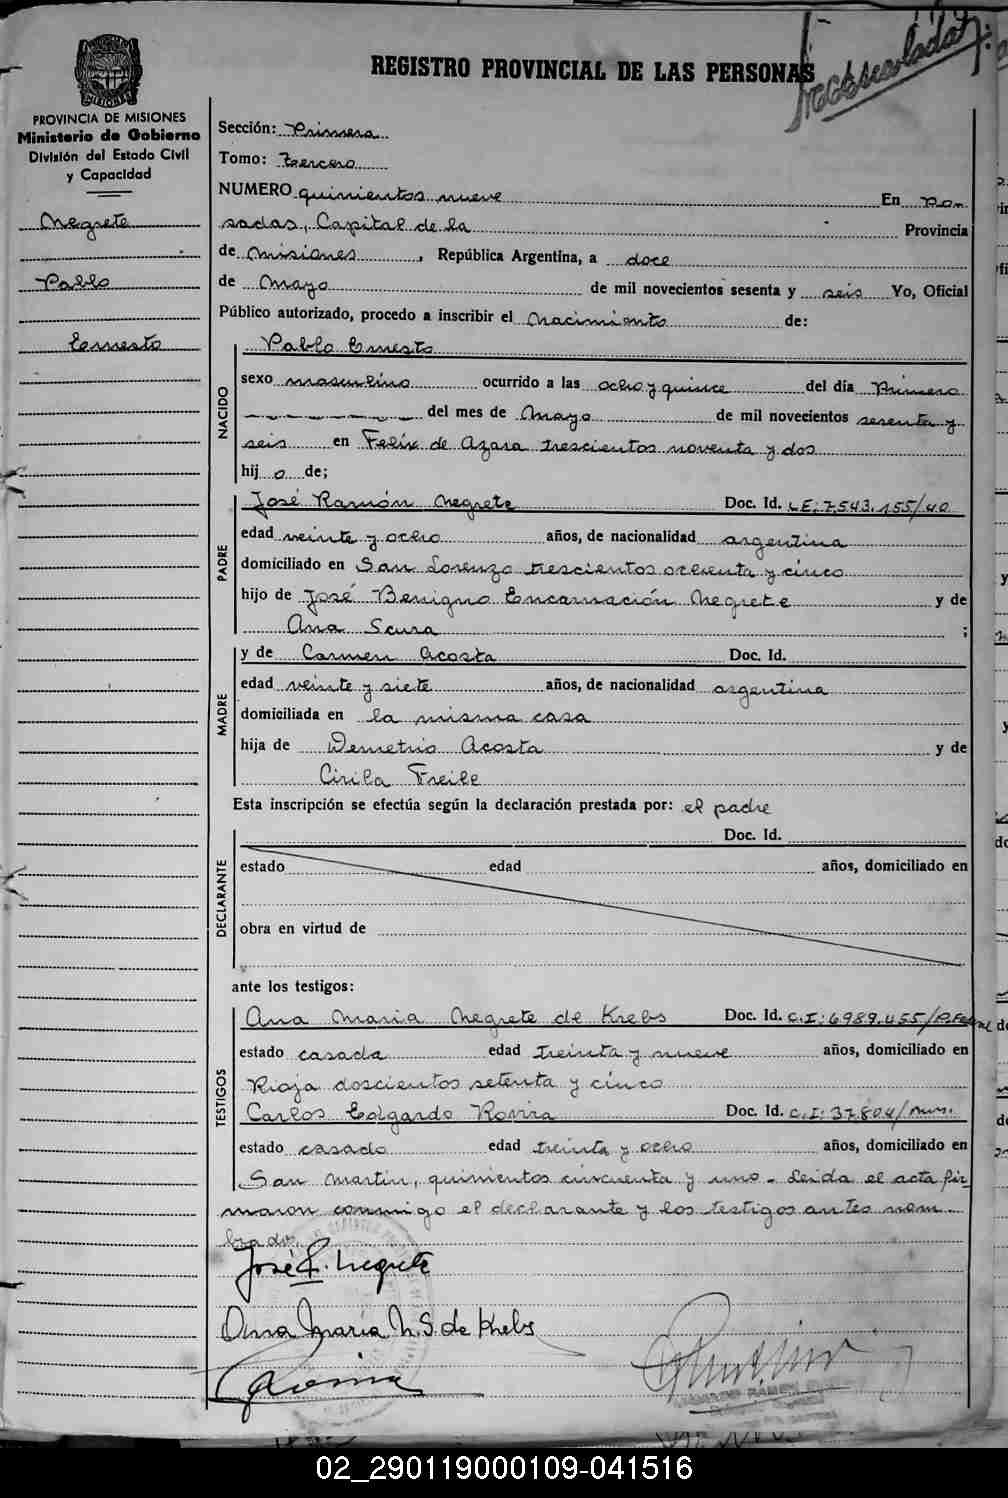 REGISTRO PROVINCIAL DE LAS PERSONAS
MISIONES
PROVINCIA DE MISIONES
Ministerio de Gobierno
División del Estado Civil
y Capacidad
Negrete
Pablo
Ernesto
Sección: Primera
Tomo: Tercero
NUMERO quinientos nueve En Po-
sadas, Capital de la Provincia
de Misiones, República Argentina, a doce
de Mayo de mil novecientos sesenta y seis Yo, Oficial
Público autorizado, procedo a inscribir el nacimiento de:
NACIDO
Pablo Ernesto
sexo masculino ocurrido a las ocho y quince del día Primero
del mes de Mayo de mil novecientos sesenta y
seis en Felix de Azara trescientos noventa y dos
hijo de;
PADRE
José Ramón Negrete Doc. Id. LE: 7.543.155/40
edad veinte y ocho años, de nacionalidad argentina
domiciliado en San Lorenzo trescientos ochenta y cinco
hijo de José Benigno Encarnación Negrete y de
Ana Scura ;
MADRE
y de Carmen Acosta Doc. Id.
edad veinte y siete años, de nacionalidad argentina
domiciliada en la misma casa
hija de Demetrio Acosta y de
Cirila Freile
Esta inscripción se efectúa según la declaración prestada por: el padre
DECLARANTE
Doc. Id.
estado edad años, domiciliado en
obra en virtud de
ante los testigos:
TESTIGOS
Ana Maria Negrete de Krebs Doc. Id. C.I: 6989.455/P.Federal
estado casada edad treinta y nueve años, domiciliado en
Rioja doscientos setenta y cinco
Carlos Edgardo Rovira Doc. Id. C.I: 37.804/mns.
estado casado edad treinta y ocho años, domiciliado en
San Martin, quinientos cincuenta y uno - Leida el acta fir
maron conmigo el declarante y los testigos antes nom-
brados.
José R. Negrete
Ana Maria N. S. de Krebs
02_290119000109-041516